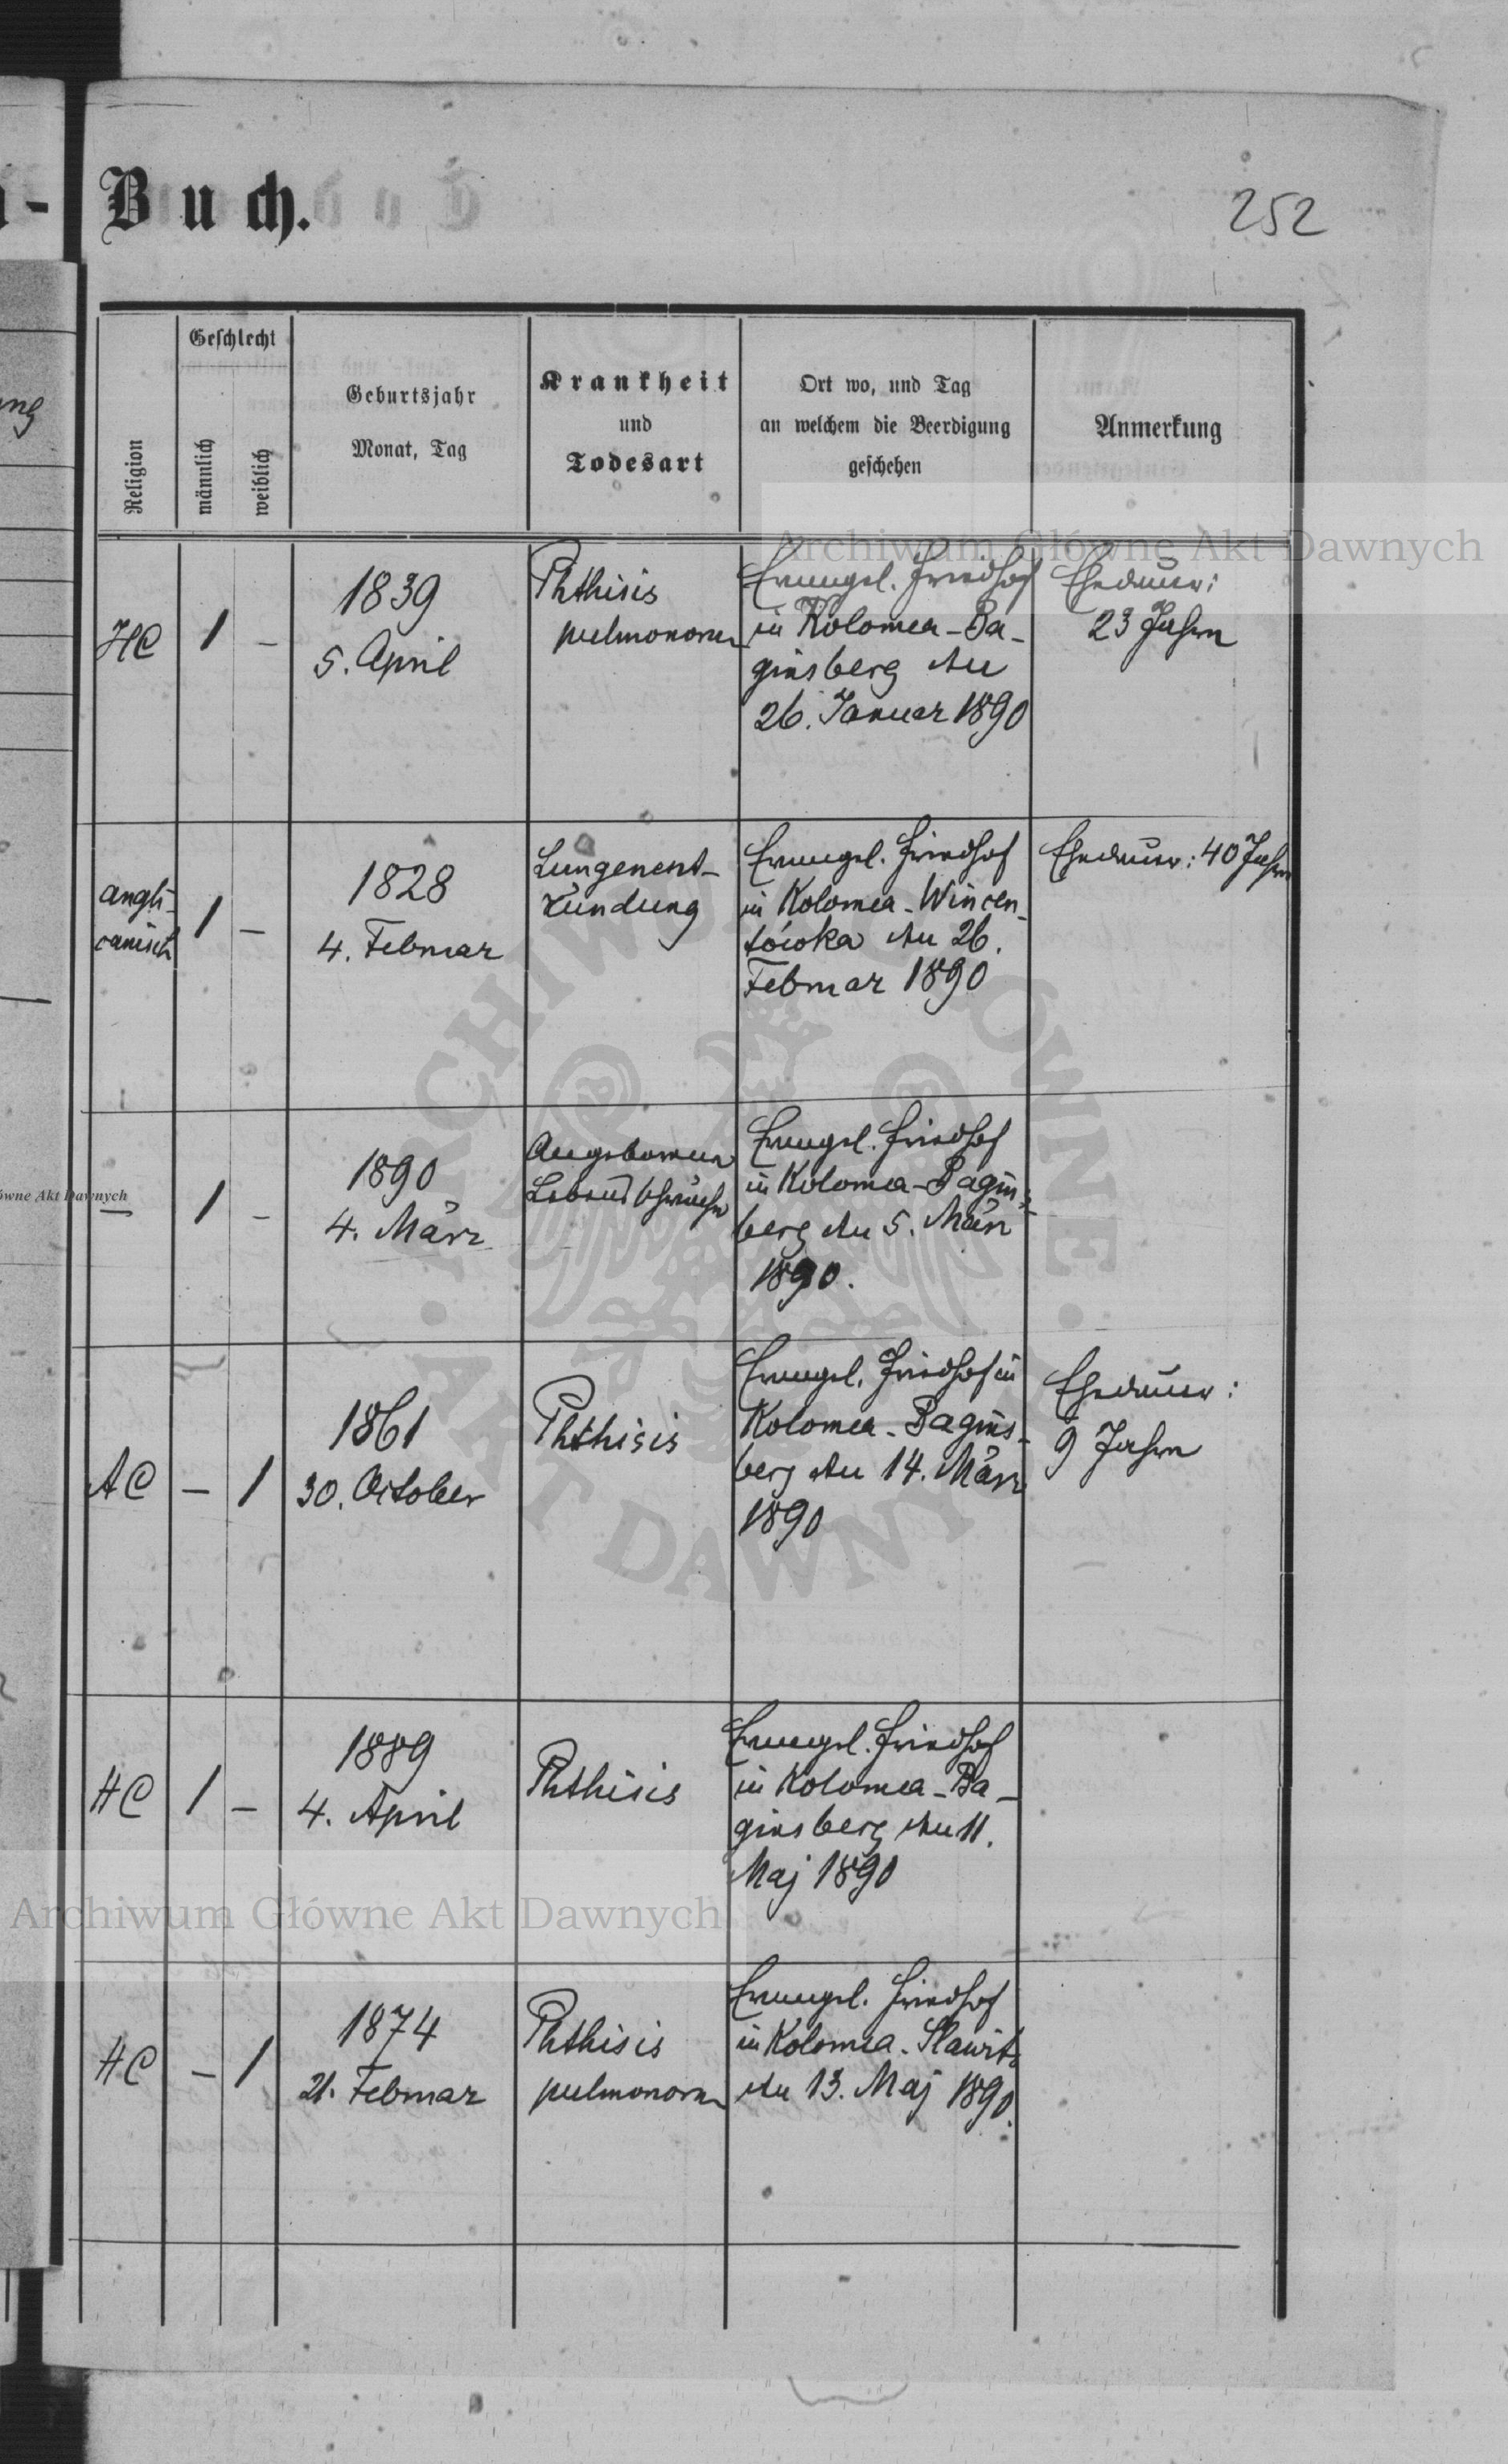 Buch.
252
Religion
Geschlecht
männlich
weiblich
Geburtsjahr
Monat, Tag
Krankheit
und
Todesart
Ort wo, und Tag
an welchem die Beerdigung
geschehen
Anmerkung
ung
Archiwum Główne Akt Dawnych
HC
1 -
1839
5. April
Phthisis
pulmonorum
Evangel. Friedhof
in Kolomea-Ba-
ginsberg den
26. Januar 1890
Ehedauer:
23 Jahre
angli-
canisch
1 -
1828
4. Februar
Lungenent-
zündung
Evangel. Friedhof
in Kolomea-Wincen-
tówka den 26.
Februar 1890
Ehedauer: 40 Jahre
ówne Akt Dawnych
—
1 -
1890
4. März
Angeborene
Lebensschwäche
Evangel. Friedhof
in Kolomea-Bagins-
berg den 5. März
1890.
AC
- 1
1861
30. October
Phthisis
Evangel. Friedhof in
Kolomea-Bagins-
berg den 14. März
1890
Ehedauer:
9 Jahre
HC
1 -
1889
4. April
Phthisis
Evangel. Friedhof
in Kolomea-Ba-
ginsberg den 11.
Maj 1890
Archiwum Główne Akt Dawnych
HC
- 1
1874
21. Februar
Phthisis
pulmonorum
Evangel. Friedhof
in Kolomea-Slawitz
den 13. Maj 1890.
ARCHIWUM GŁÓWNE AKT DAWNYCH